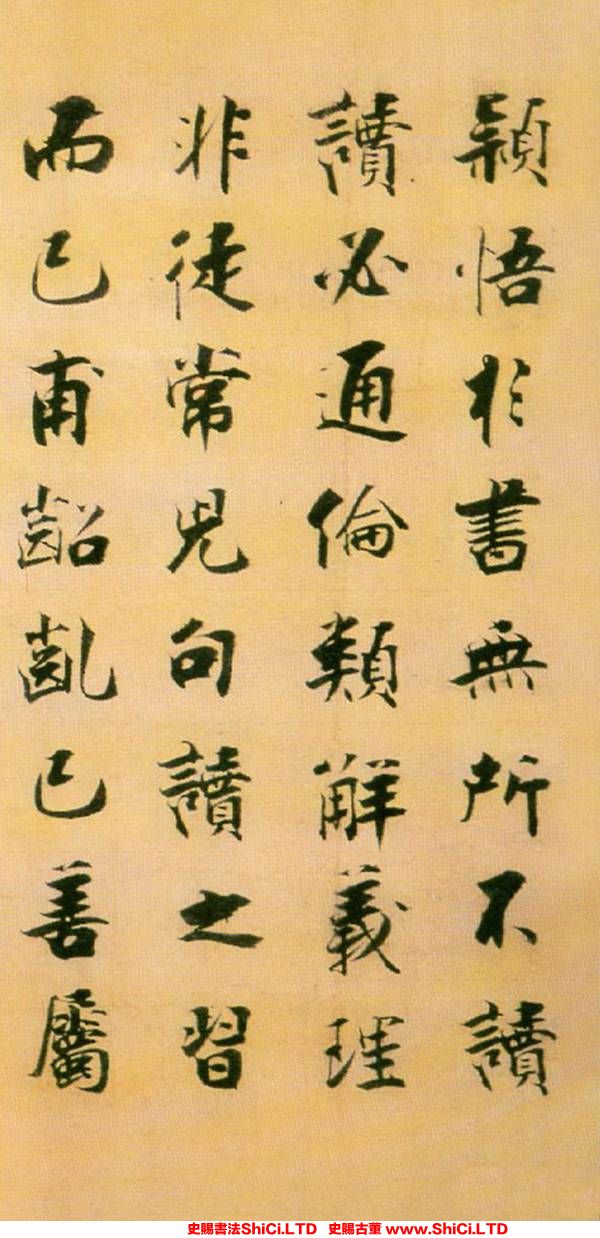 穎悟於書無所不讀
讀必通倫類解義理
非徒常児句讀之習
而已甫齠齓已善屬
史賜書法ShiCi.LTD 史賜古董 www.ShiCi.LTD